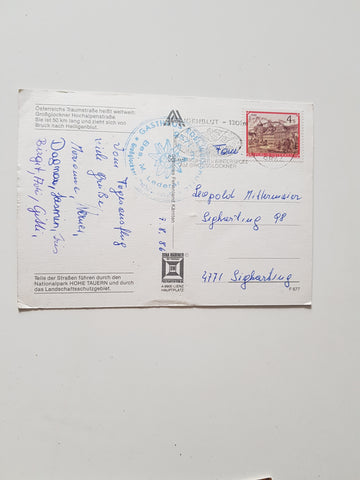 Österreichs Traumstraße heißt weltweit:
Großglockner Hochalpenstraße
Sie ist 50 km lang und zieht sich von
Bruck nach Heiligenblut.
Vom Tagesausflug
viele Grüße,
Marianne,
Dagmar,
Birgit,
7.8.86
Teile der Straßen führen durch den
Nationalpark HOHE TAUERN und durch
das Landschaftsschutzgebiet.
A 9900 LIENZ
HAUPTPLATZ
GASTHOF
HEILIGENBLUT - 1301m
AM GROSSGLOCKNER
4
Fam.
Leopold Mittermaier
Sigharting 98
4771 Sigharting
P 677